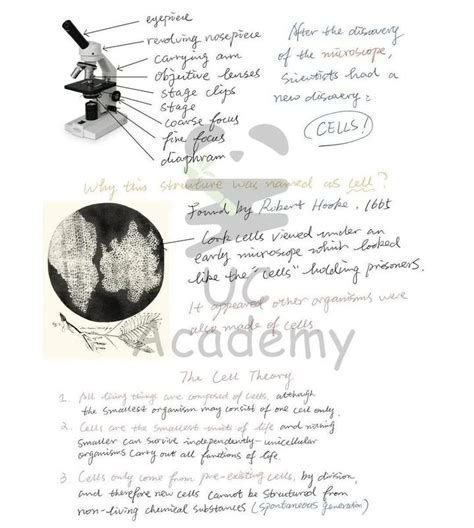 eyepiece
revolving nosepiece
carrying arm
objective lenses
stage clips
stage
coarse focus
fine focus
diaphram
After the discovery
of the microscope,
Scientists had a
new discovery:
CELLS!
Why this structure was named as cell?
Found by Robert Hooke. 1665
Cork cells viewed under an
early microscope which looked
like the "cells" holding prisoners.
It appeared other organisms were
also made of cells
UC
Academy
The Cell Theory
1. All living things are composed of cells, although
the smallest organism may consist of one cell only.
2. Cells are the smallest units of life and nothing
smaller can survive independently - unicellular
organisms carry out all functions of life.
3. Cells only come from pre-existing cells, by division,
and therefore new cells cannot be structured from
non-living chemical substances (spontaneous generation)